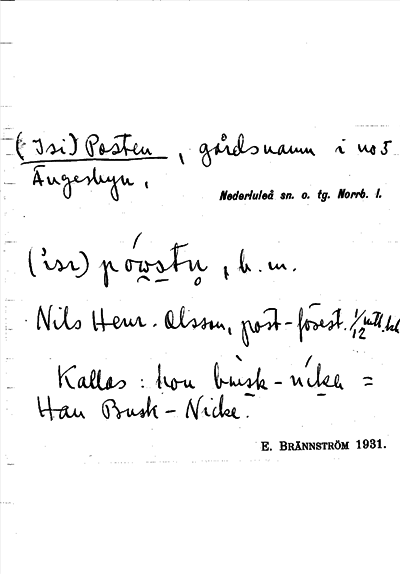 (Isi) Posten, gårdsnamn i no 5
Ängesbyn.
Nederluleå sn. o. tg. Norrb. l.
(isı) pówstn̥, b. m.
Nils Henr. Olsson, post-förest. 1/12 mtl.
Kallas: hon búsk-níkea =
Han Busk-Nicke.
E. BRÄNNSTRÖM 1931.